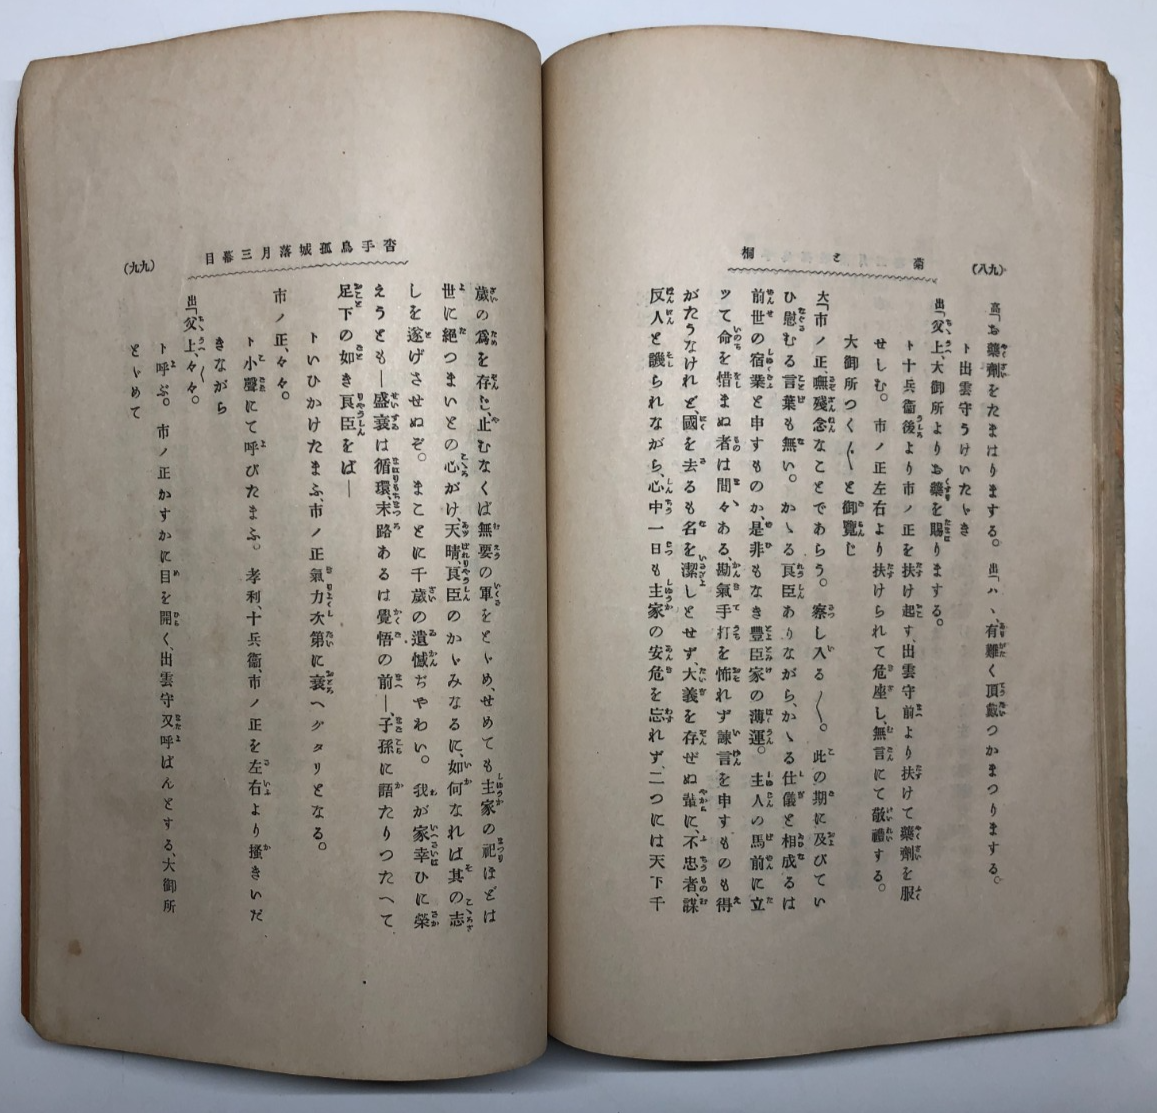 菊と桐
(九八)
高「お藥劑をたまはりまする。 出「ハヽ、有難く頂戴つかまつりまする。
ト出雲守うけいたゞき
出「父上、大御所よりお藥を賜りまする。
ト十兵衞後より市ノ正を扶け起す、出雲守前より扶けて藥劑を服
せしむ。市ノ正左右より扶けられて危座し、無言にて敬禮する。
大御所つく〴〵と御覽じ
大「市ノ正、嘸殘念なことであらう。察し入る〳〵。此の期に及びてい
ひ慰むる言葉も無い。かゝる良臣ありながら、かゝる仕儀と相成るは
前世の宿業と申すものか、是非もなき豐臣家の薄運。主人の馬前に立
ッて命を惜まぬ者は間々ある、勘氣手打を怖れず諫言を申すものも得
がたうなけれど、國を去るも名を潔しとせず、大義を存ぜぬ輩に、不忠者、謀
反人と譏られながら、心中一日も主家の安危を忘れず、二つには天下千
沓手鳥孤城落月三幕目
(九九)
歲の爲を存じ、止むなくば無要の軍をとゞめ、せめても主家の祀ほどは
世に絕つまいとの心がけ、天晴、良臣のかゞみなるに、如何なれば其の志
しを遂げさせぬぞ。まことに千歲の遺憾ぢやわい。我が家幸ひに榮
えうとも―盛衰は循環、末路あるは覺悟の前―、子孫に語たりつたへて
足下の如き良臣をば―
トいひかけたまふ、市ノ正氣力次第に衰へグタリとなる。
市ノ正、々々。
ト小聲にて呼びたまふ。孝利、十兵衞、市ノ正を左右より搔きいだ
きながら
出「父上、〳〵々々。
ト呼ぶ。市ノ正かすかに目を開く、出雲守又呼ばんとする、大御所
とゞめて